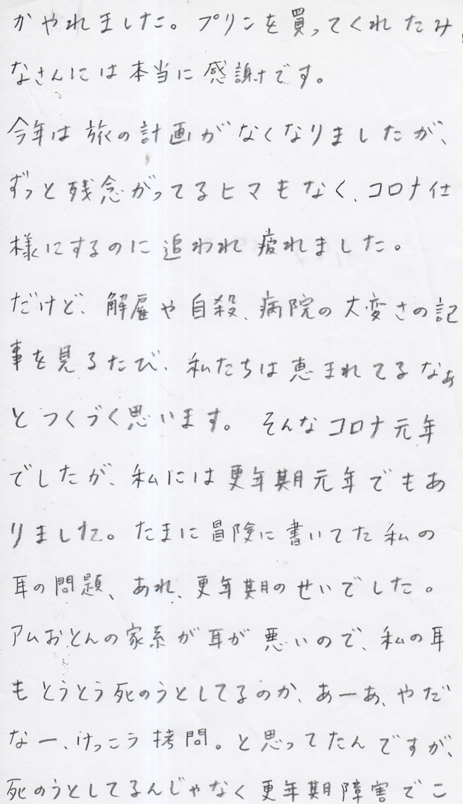 かやれました。プリンを買ってくれたみ
なさんには本当に感謝です。
今年は旅の計画がなくなりましたが、
ずっと残念がってるヒマもなく、コロナ仕
様にするのに追われ疲れました。
だけど、解雇や自殺、病院の大変さの記
事を見るたび、私たちは恵まれてるなぁ
とつくづく思います。そんなコロナ元年
でしたが、私には更年期元年でもあ
りました。たまに冒険に書いてた私の
耳の問題、あれ、更年期のせいでした。
アムおとんの家系が耳が悪いので、私の耳
もとうとう死のうとしてるのか、あーあ、やだ
なー、けっこう拷問。と思ってたんですが、
死のうとしてるんじゃなく更年期障害でこ